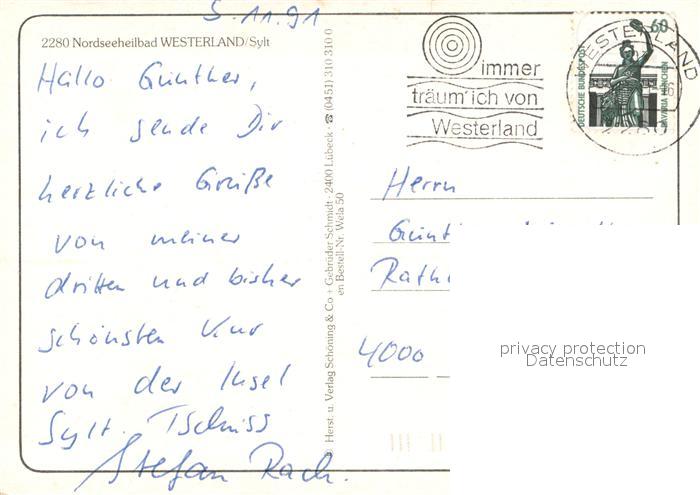 5.11.91
2280 Nordseeheilbad WESTERLAND/Sylt
Hallo Günther,
ich sende Dir
herzliche Grüße
von meiner
dritten und bisher
schönsten Kur
von der Insel
Sylt. Tschüss
Stefan Rach.
Herst. u. Verlag Schöning & Co + Gebrüder Schmidt · 2400 Lübeck · ☎ (04 51) 310 310 0
en Bestell-Nr. Wela 50
immer
träum' ich von
Westerland
WESTERLAND
60
DEUTSCHE BUNDESPOST
BAVARIA MÜNCHEN
Herrn
4000
privacy protection
Datenschutz